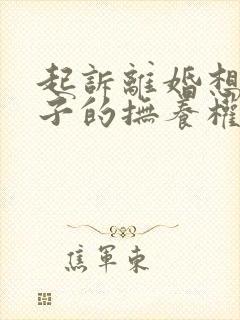 起訴離婚想
子的撫養權
焦軍東